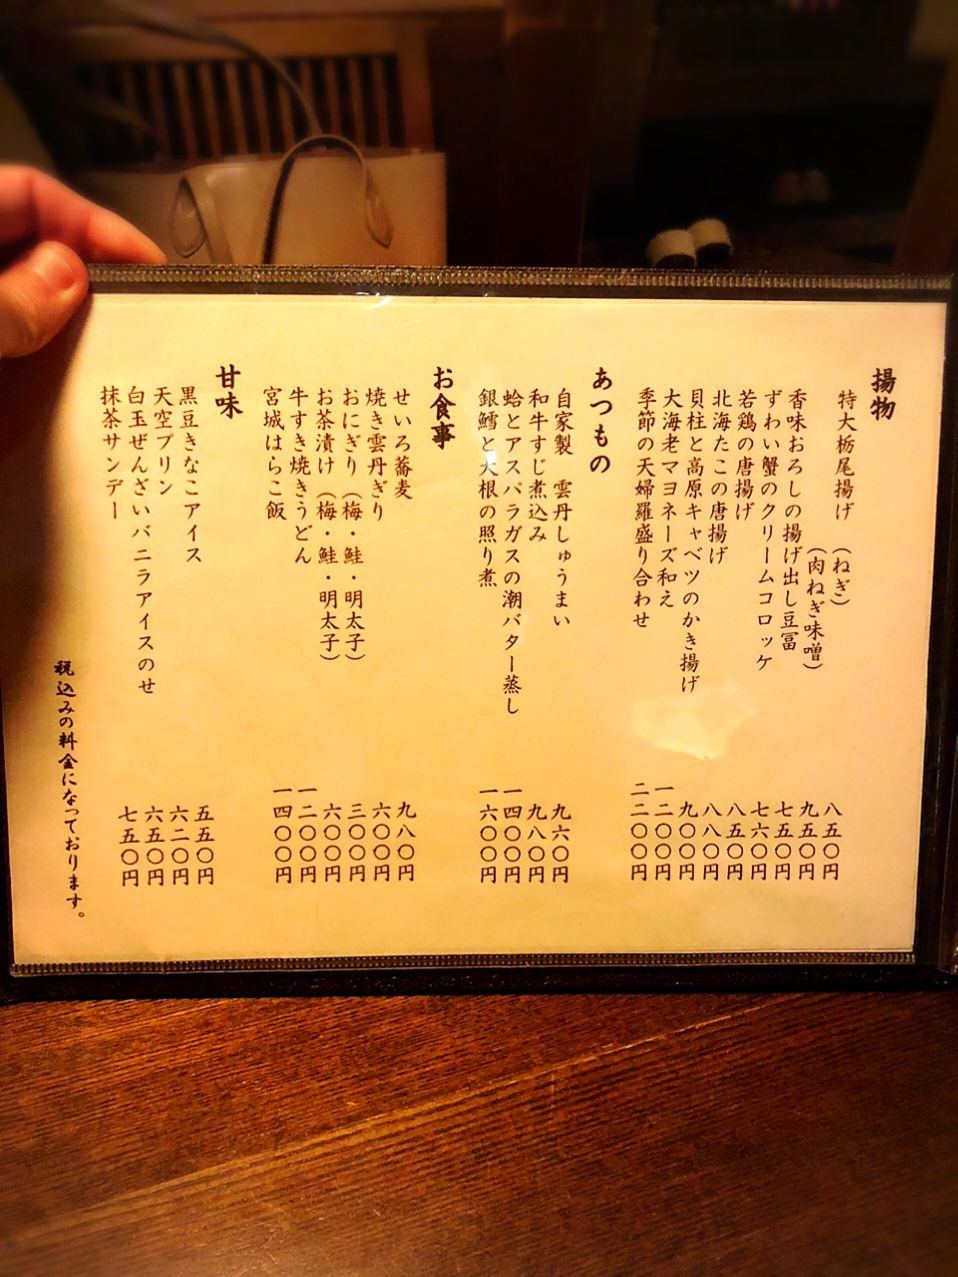 揚物
特大栃尾揚げ (ねぎ) 八五〇円
(肉ねぎ味噌) 九五〇円
香味おろしの揚げ出し豆冨 七五〇円
ずわい蟹のクリームコロッケ 七六〇円
若鶏の唐揚げ 八五〇円
北海たこの唐揚げ 八八〇円
貝柱と高原キャベツのかき揚げ 九〇〇円
大海老マヨネーズ和え 一二〇〇円
季節の天婦羅盛り合わせ 二二〇〇円
あつもの
自家製 雲丹しゅうまい 九六〇円
和牛すじ煮込み 九八〇円
蛤とアスパラガスの潮バター蒸し 一四〇〇円
銀鱈と大根の照り煮 一六〇〇円
お食事
せいろ蕎麦 九八〇円
焼き雲丹ぎり 六〇〇円
おにぎり (梅・鮭・明太子) 三〇〇円
お茶漬け (梅・鮭・明太子) 六〇〇円
牛すき焼きうどん 一二〇〇円
宮城はらこ飯 一四〇〇円
甘味
黒豆きなこアイス 五五〇円
天空プリン 六二〇円
白玉ぜんざいバニラアイスのせ 六五〇円
抹茶サンデー 七五〇円
税込みの料金になっております。